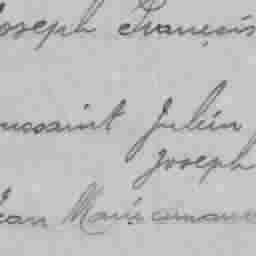 Joseph François
Toussaint Julien
Joseph
Jean Marie